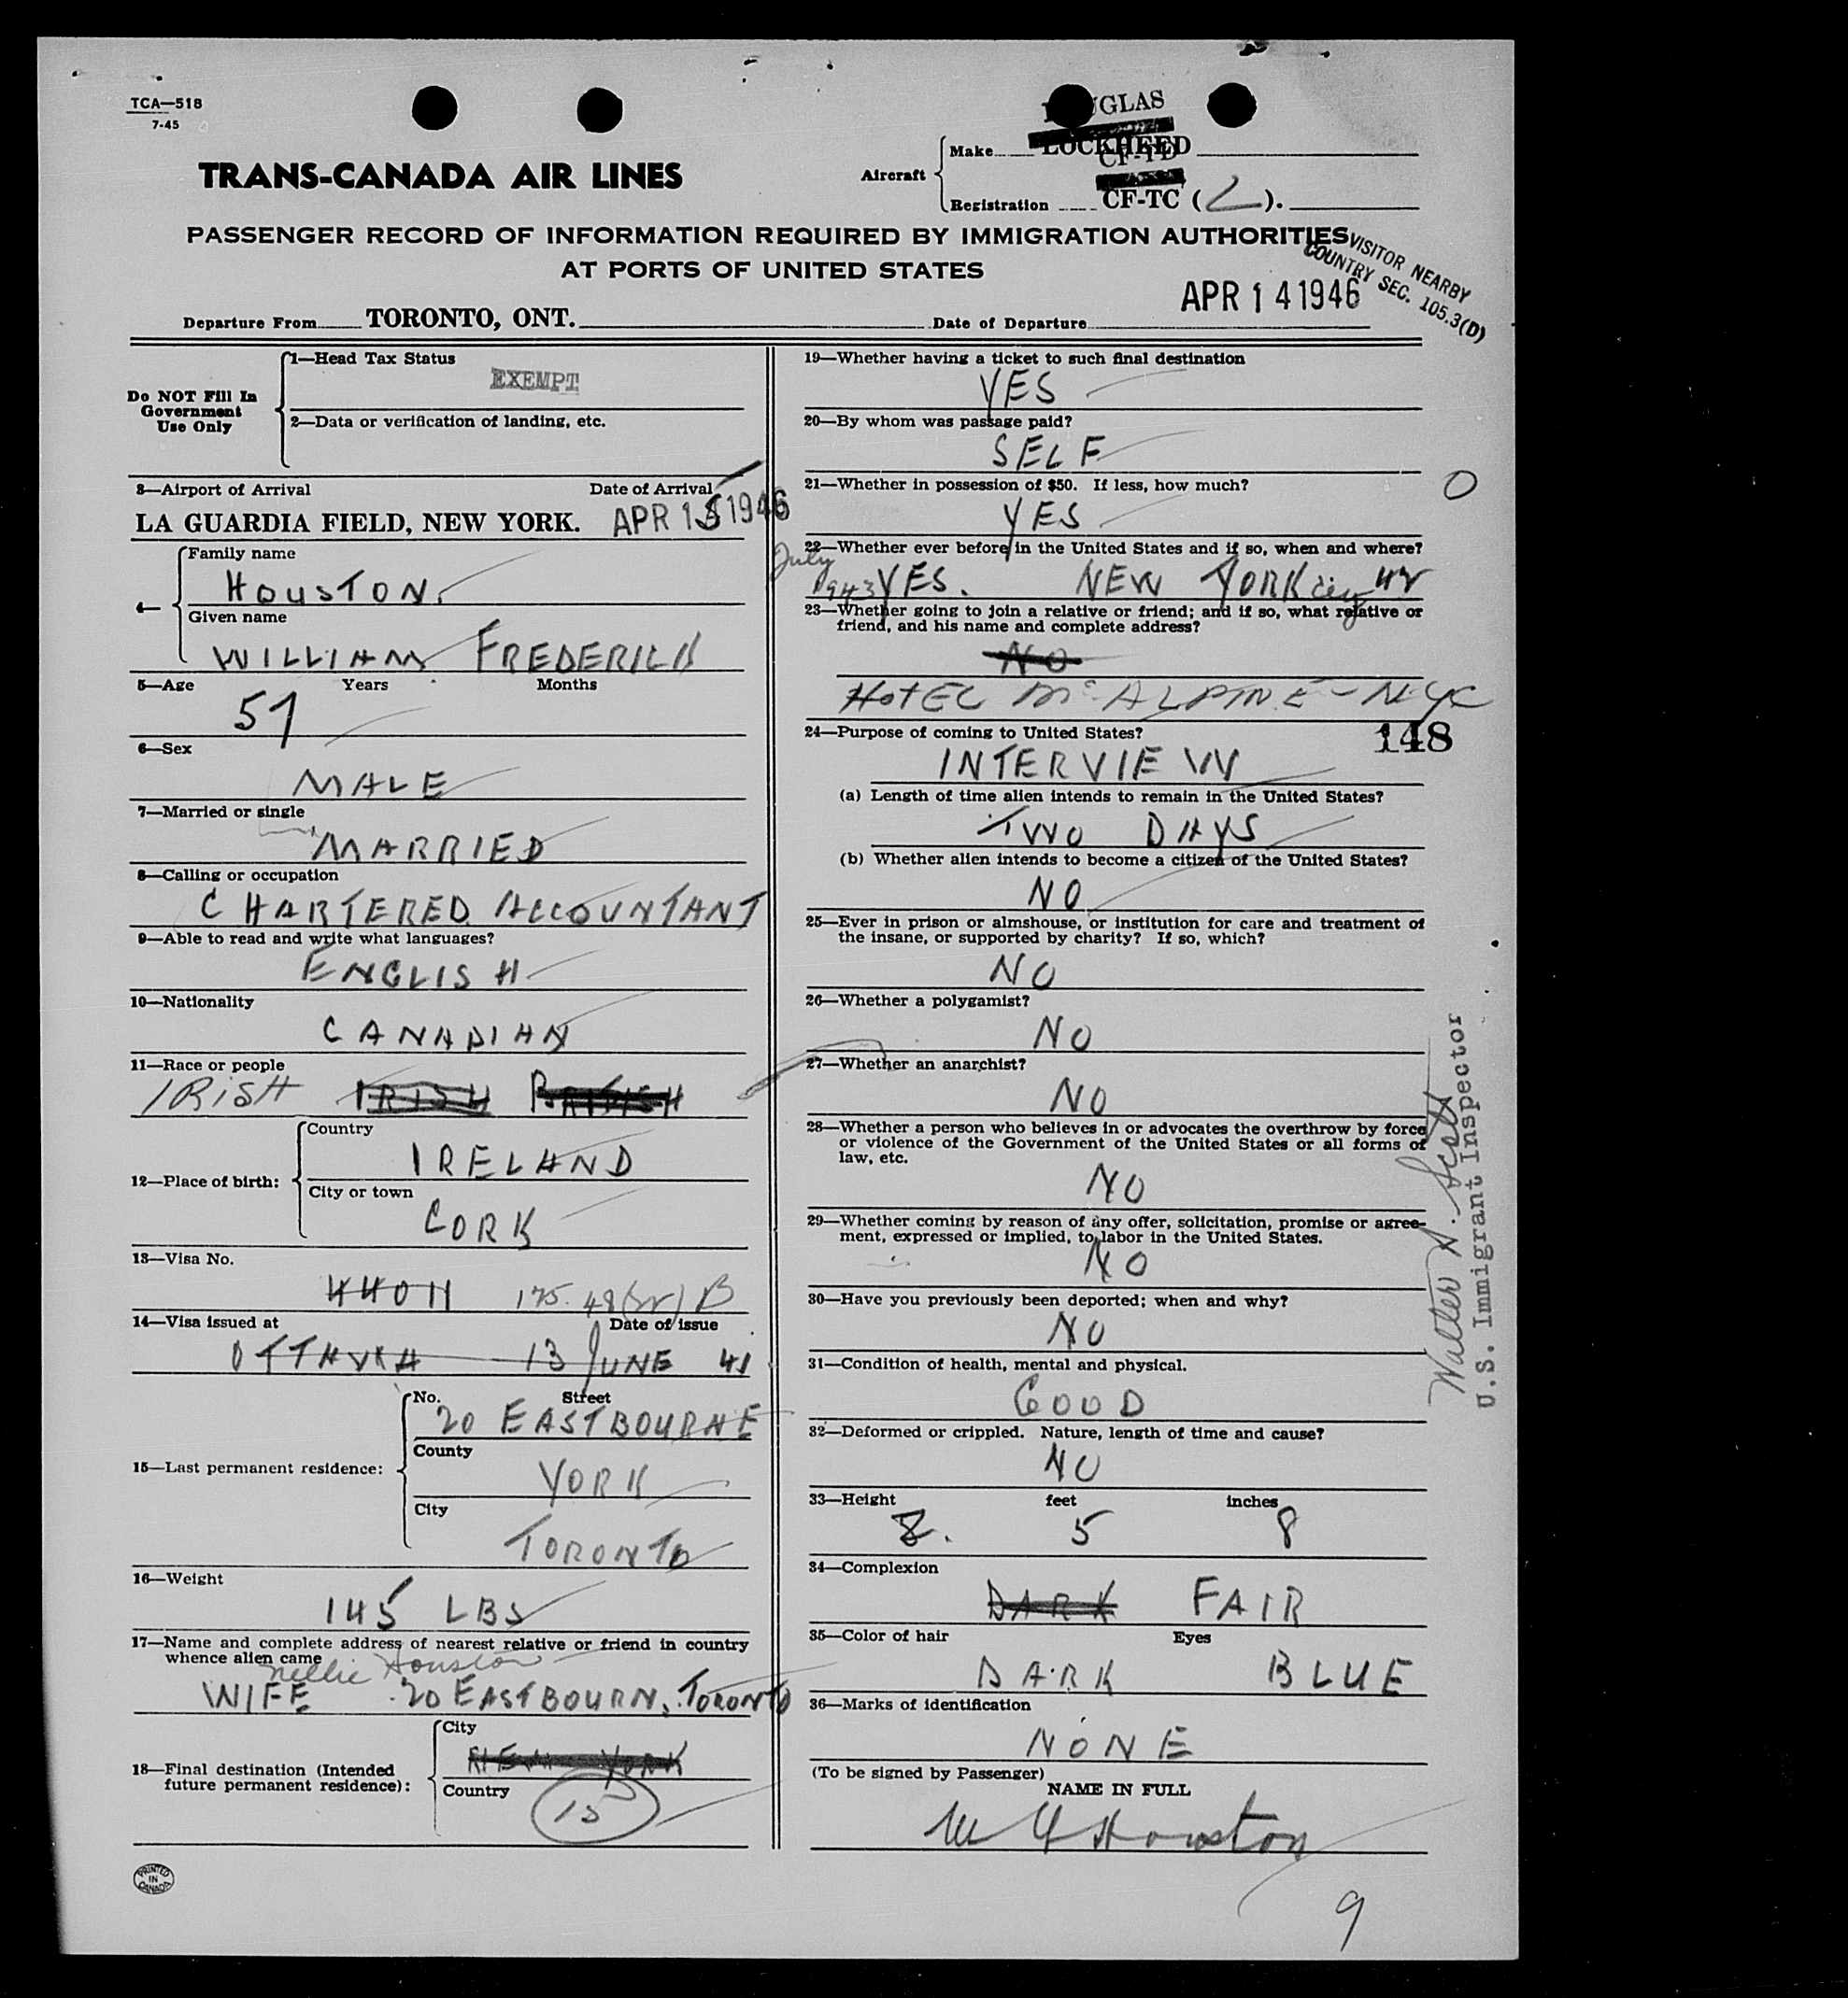 TCA—518
7-45
TRANS-CANADA AIR LINES
Aircraft
Make LOCKHEED
CF-TD
Registration CF-TC (L).
PASSENGER RECORD OF INFORMATION REQUIRED BY IMMIGRATION AUTHORITIES
AT PORTS OF UNITED STATES
VISITOR NEARBY
COUNTRY SEC. 105.3(D)
Departure From TORONTO, ONT. Date of Departure APR 14 1946
Do NOT Fill In
Government
Use Only
1—Head Tax Status
EXEMPT
2—Data or verification of landing, etc.
3—Airport of Arrival Date of Arrival
LA GUARDIA FIELD, NEW YORK. APR 15 1946
4—
Family name
HOUSTON.
Given name
WILLIAM FREDERICK
5—Age Years Months
57
6—Sex
MALE
7—Married or single
MARRIED
8—Calling or occupation
CHARTERED ACCOUNTANT
9—Able to read and write what languages?
ENGLISH
10—Nationality
CANADIAN
11—Race or people
IRISH IRISH BRITISH
12—Place of birth:
Country
IRELAND
City or town
CORK
13—Visa No.
175.48 (Sr) B
14—Visa issued at Date of issue
OTTAWA 13 JUNE 41
15—Last permanent residence:
No. Street
20 EASTBOURNE
County
YORK
City
TORONTO
16—Weight
145 LBS
17—Name and complete address of nearest relative or friend in country
whence alien came
Nellie Houston
WIFE 20 EASTBOURN, TORONTO
18—Final destination (Intended
future permanent residence):
City
NEW YORK
Country
15
PRINTED
IN
CANADA
19—Whether having a ticket to such final destination
YES
20—By whom was passage paid?
SELF
21—Whether in possession of $50. If less, how much?
YES
O
22—Whether ever before in the United States and if so, when and where?
July
1943 YES. NEW YORK City
23—Whether going to join a relative or friend; and if so, what relative or
friend, and his name and complete address?
NO
HOTEL McALPINE - NYC
148
24—Purpose of coming to United States?
INTERVIEW
(a) Length of time alien intends to remain in the United States?
TWO DAYS
(b) Whether alien intends to become a citizen of the United States?
NO
25—Ever in prison or almshouse, or institution for care and treatment of
the insane, or supported by charity? If so, which?
NO
26—Whether a polygamist?
NO
27—Whether an anarchist?
NO
28—Whether a person who believes in or advocates the overthrow by force
or violence of the Government of the United States or all forms of
law, etc.
NO
29—Whether coming by reason of any offer, solicitation, promise or agree-
ment, expressed or implied, to labor in the United States.
NO
30—Have you previously been deported; when and why?
NO
31—Condition of health, mental and physical.
GOOD
32—Deformed or crippled. Nature, length of time and cause?
NO
33—Height feet inches
5 8
34—Complexion
DARK FAIR
35—Color of hair Eyes
DARK BLUE
36—Marks of identification
NONE
(To be signed by Passenger)
NAME IN FULL
Wm F Houston
9
Walter A. Scott
U.S. Immigrant Inspector